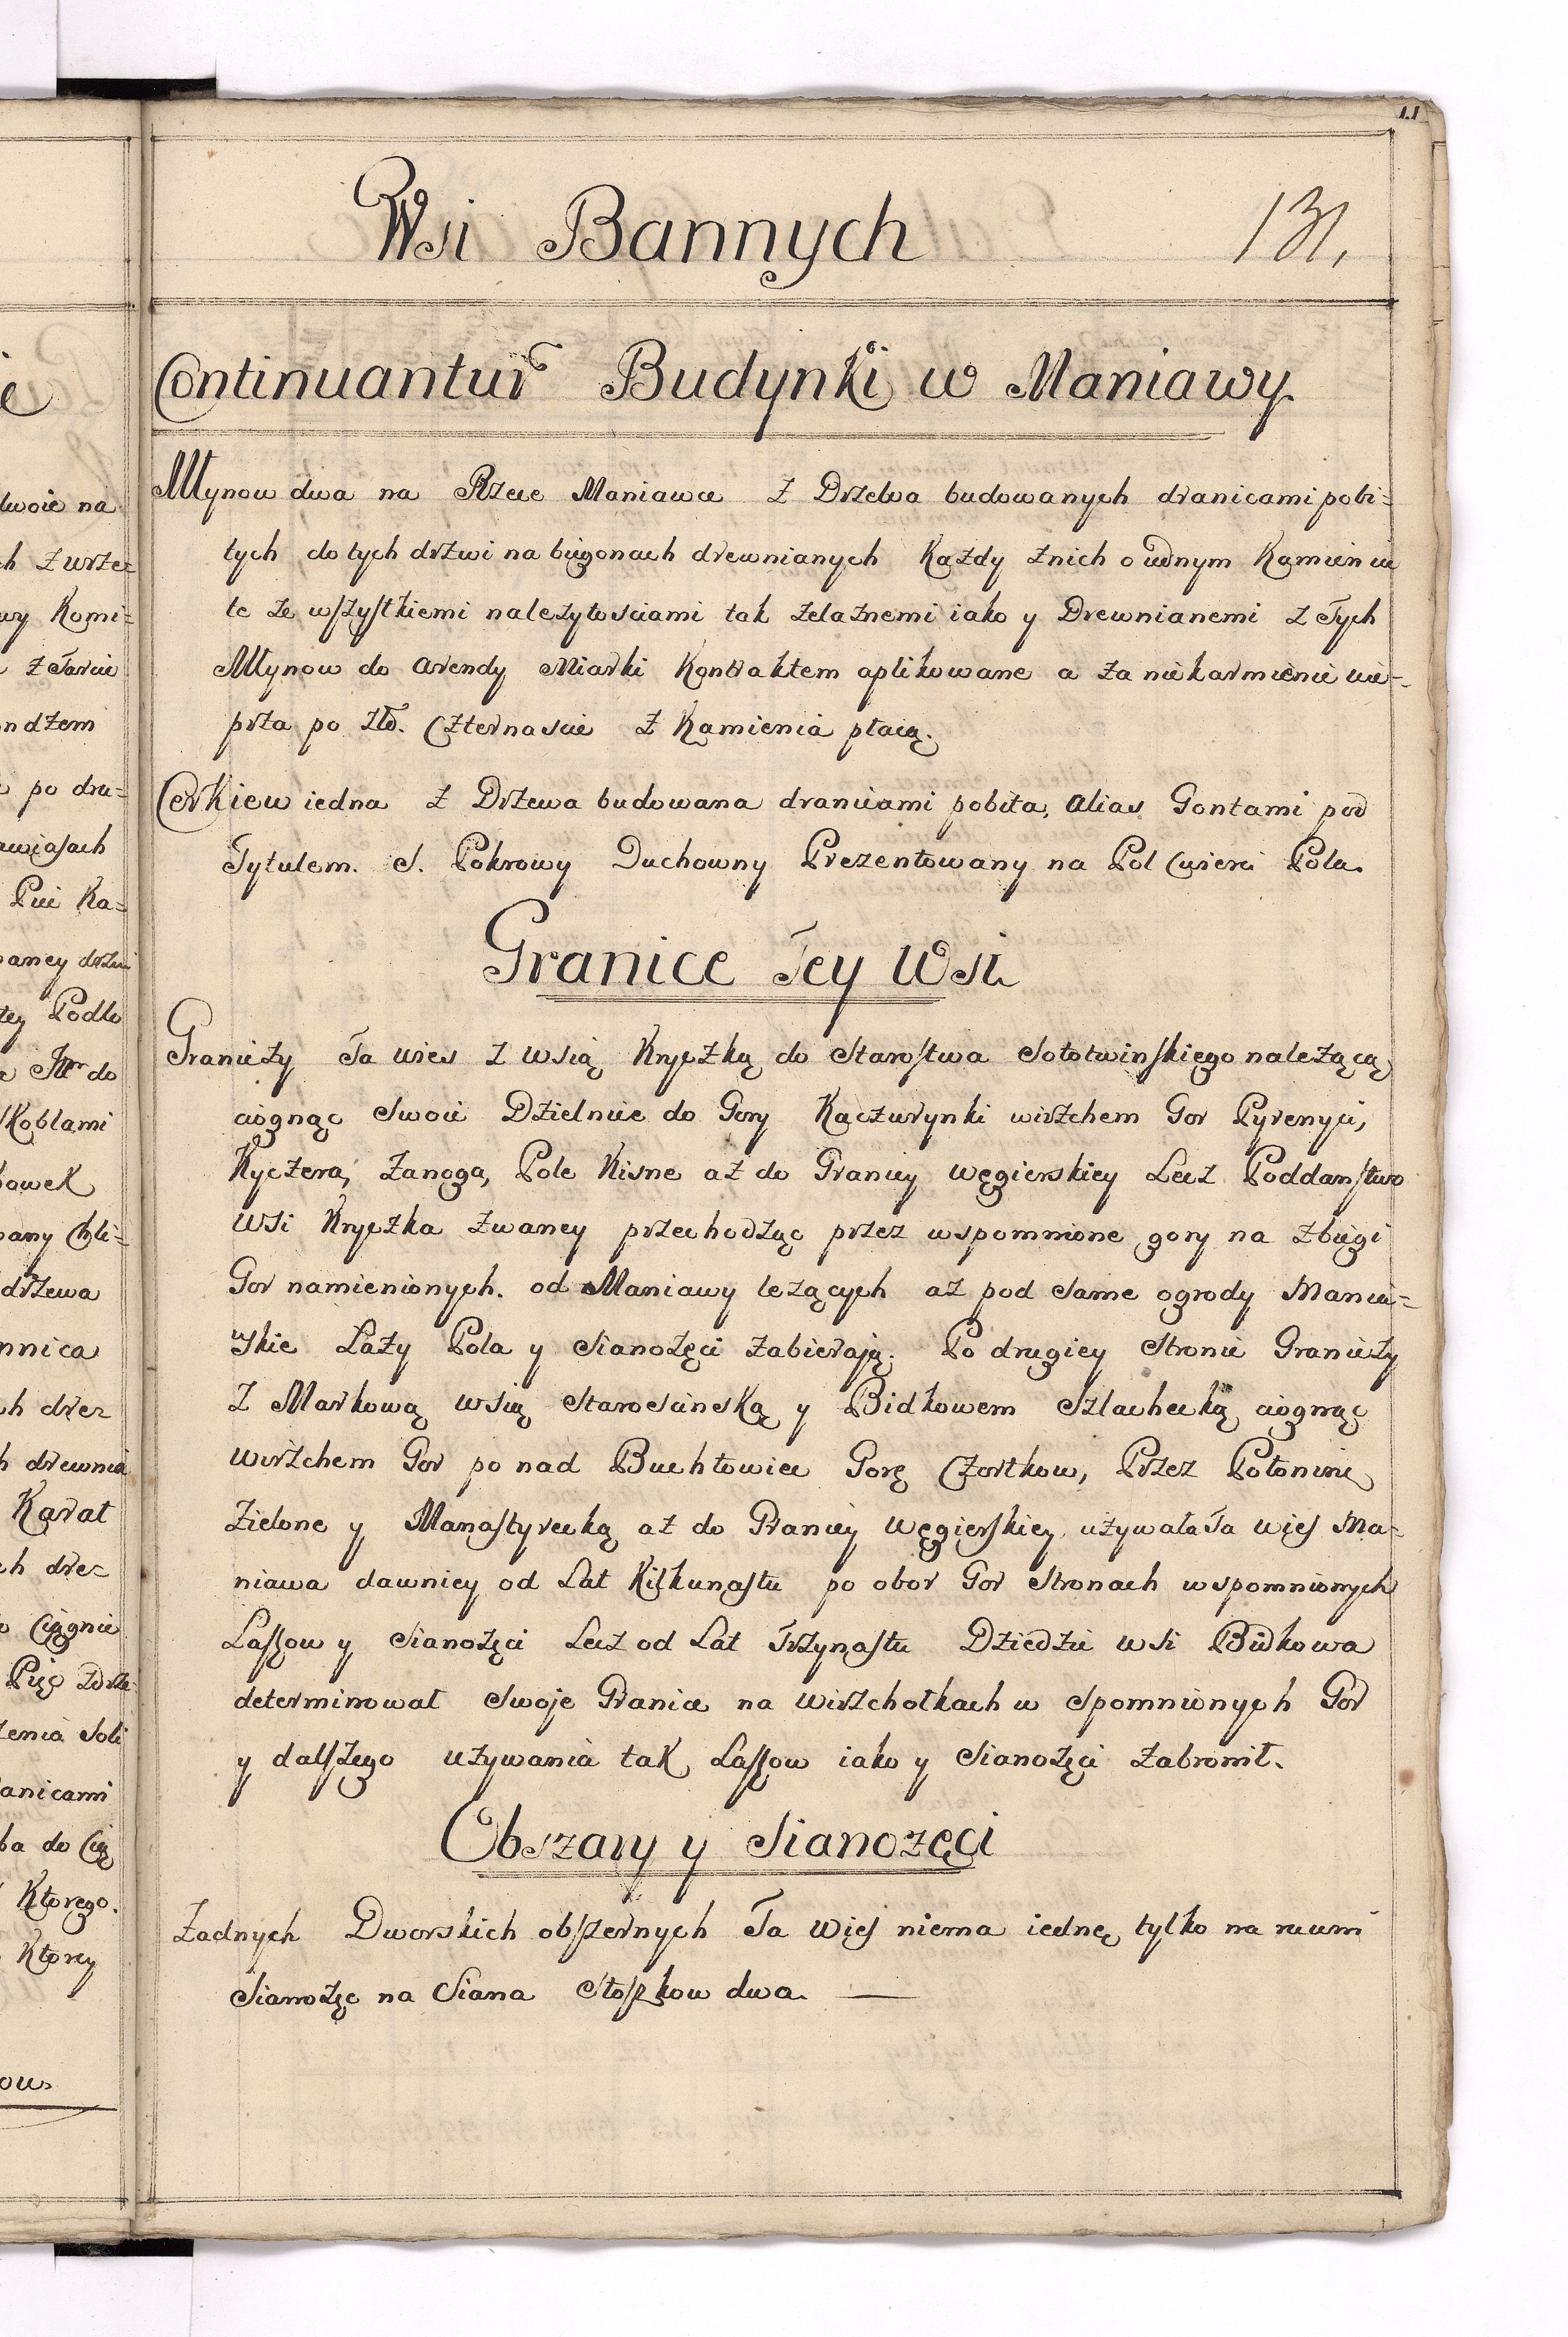 11
Wsi Bannych
131,
Continuantur Budynki w Maniawy.
Młynow dwa na Rzece Maniawce z Drzewa budowanych dranicami pobi=
tych do tych drzwi na biegonach drewnianych Każdy z nich o iednym Kamieniu
te ze wszystkiemi należytosciami tak żelaznemi iako y Drewnianemi z Tych
Młynow do Arendy Miarki Kontraktem aplikowane a za niekarmienie wie-
prza po Złł. Czternascie z Kamienia płacą.
Cerkiew iedna z Drzewa budowana dranicami pobita, alias Gontami pod
Tytulem. S. Pokrowy Duchowny Prezentowany na Pol Cwierci Pola.
Granice Tey Wsi
Graniczy Ta wies z wsią Kryczką do Starostwa Sołotwinskiego należącą
ciognąc swoie Dzielnice do Gory Kaczurynki wirzchem Gor Pyrenyci,
Kyczera, Zanoga, Pole Kisne aż do Granicy węgierskiey Lecz Poddanstwo
Wsi Kryczka zwaney przechodząc przez wspomnione gory na zbiegi
Gor namienionych. od Maniawy leżących aż pod same ogrody Mania=
wskie Łazy Pola y Sianożęci zabieraią. Po drugiey Stronie Graniczy
z Markową wsią Staroscinską y Bidkowem Szlachecką ciognąc
wirzchem Gor ponad Buchtowiec Gorę Czortkow, Przez Połoninę
Zielone y Manastyrecką aż do Granicy węgierskiey używała Ta wies Ma=
niawa dawniey od Lat Kilkunastu po obor Gor Stronach wspomnionych
Lassow y Sianożęci Lecz od Lat Trzynastu Dziedzic wsi Bidkowa
determinował swoje Granice na wirzchołkach w spomnionych Gor
y dalszego używania tak Lassow iako y Sianożęci zabronił.
Obszary y Sianozęci
Żadnych Dworskich obszernych Ta Wies niema iednę tylko na
Sianożęc na Siana Stoszkow dwa. —